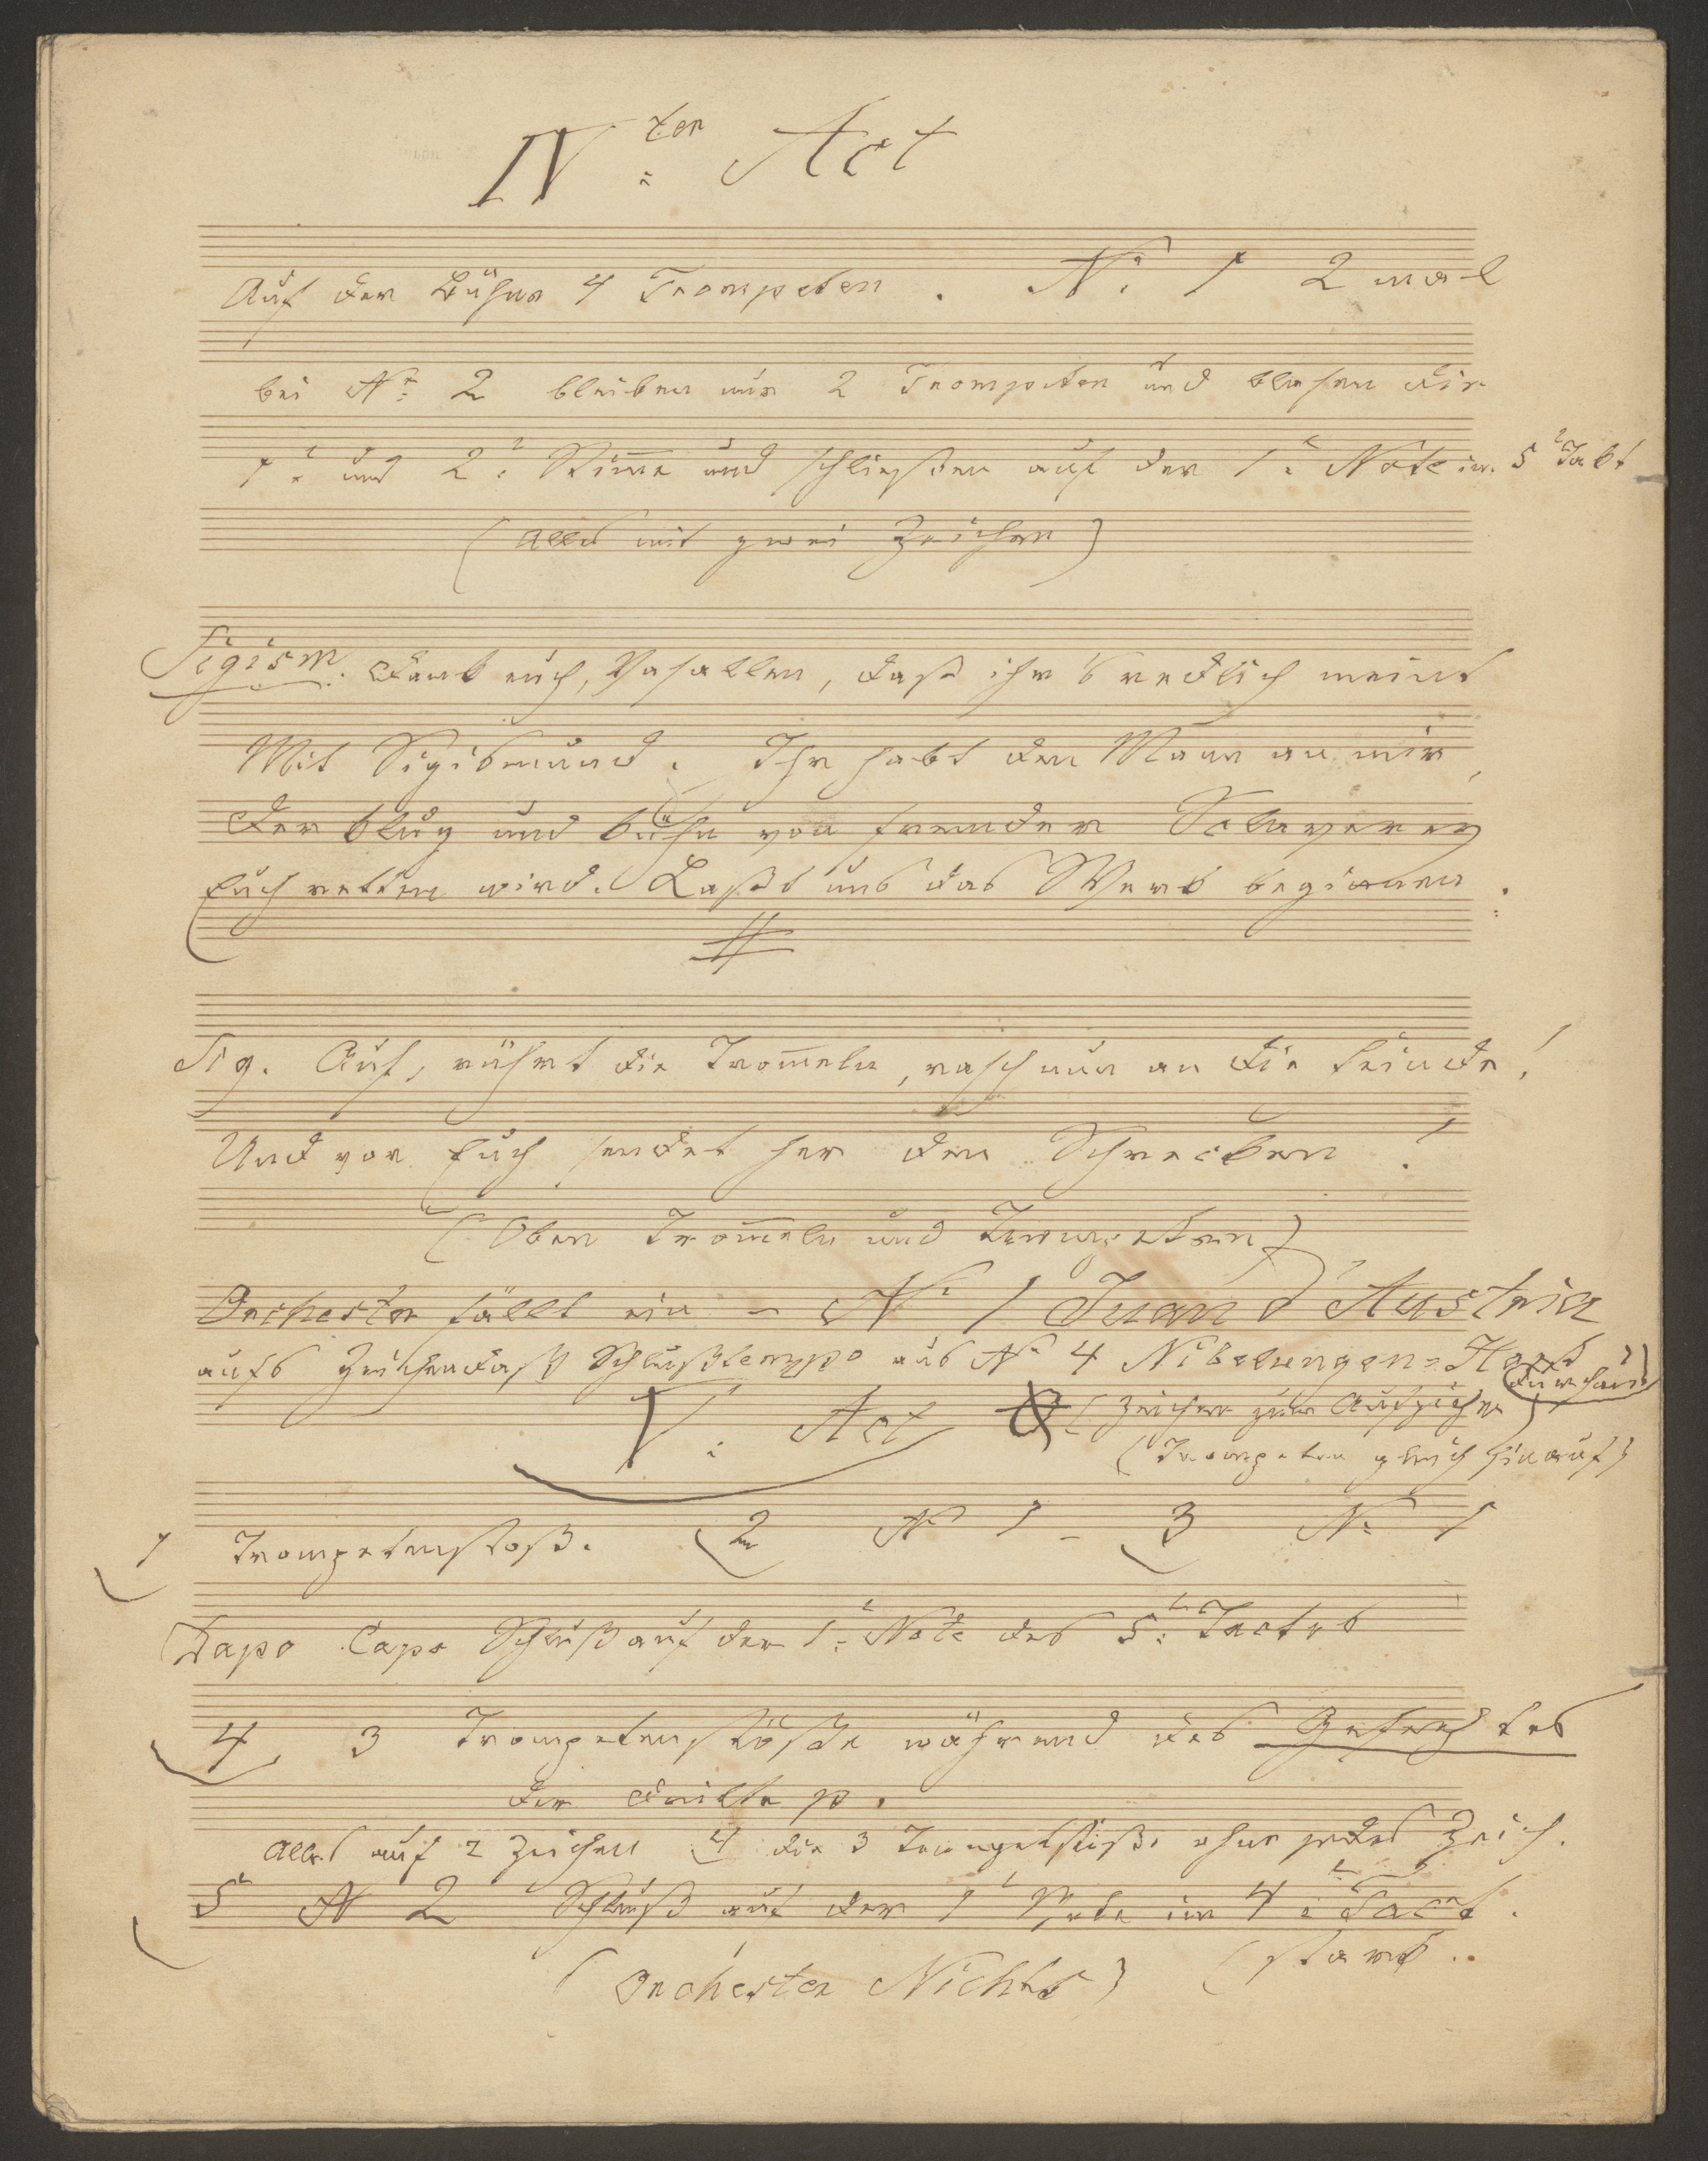 IV ten Act
Auf der Bühne 4 Trompeten. No. 1 2 mal
bei No. 2 bleiben nur 2 Trompeten und blasen die
1.e und 2.e Stim̄e und schließen auf der 1.e Note im 5t Takt
(Alles mit zwei Zeichen)
Sigism. Dank euch, Vasallen, daß ihr's redlich meint
Mit Sigismund. Ihr habt den Mann an mir,
Der klug und kühn von fremder Sclaverey
Euch retten wird. Laßt uns das Werk beginnen.
Sig. Auf, rührt die Trom̄eln, rasch nun an die Feinde!
Und vor Euch sendet her den Schrecken!
(Oben Trom̄eln und Trompeten)
Orchester fällt ein – No. 1 Juan d'Austria
aufs Zeichen daß Schlußtempo aus No 4 Nibelungen=
V. Act (Zeichen zum Aufziehen)
(Trompeten gleich hinauf)
1 Trompetenstoß. 2 No 1 – 3 No. 1
Dapo Capo Schluß auf der 1.e Note des 5.t Tactes
4, 3 Trompetenstöße während des Gefechtes
der dritte p.
Alles auf 2 Zeichen 4 die 3 Trompetstöße ohne jedes Zeich.
5 N 2 Schluß auf der 1t Note im 4.t Tact.
(Orchester Nichts) (stark..